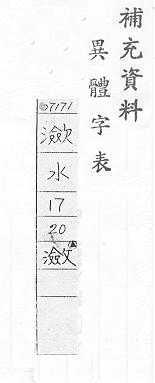 補充資料
異體字表
07171
㶑
水
17
20
瀲